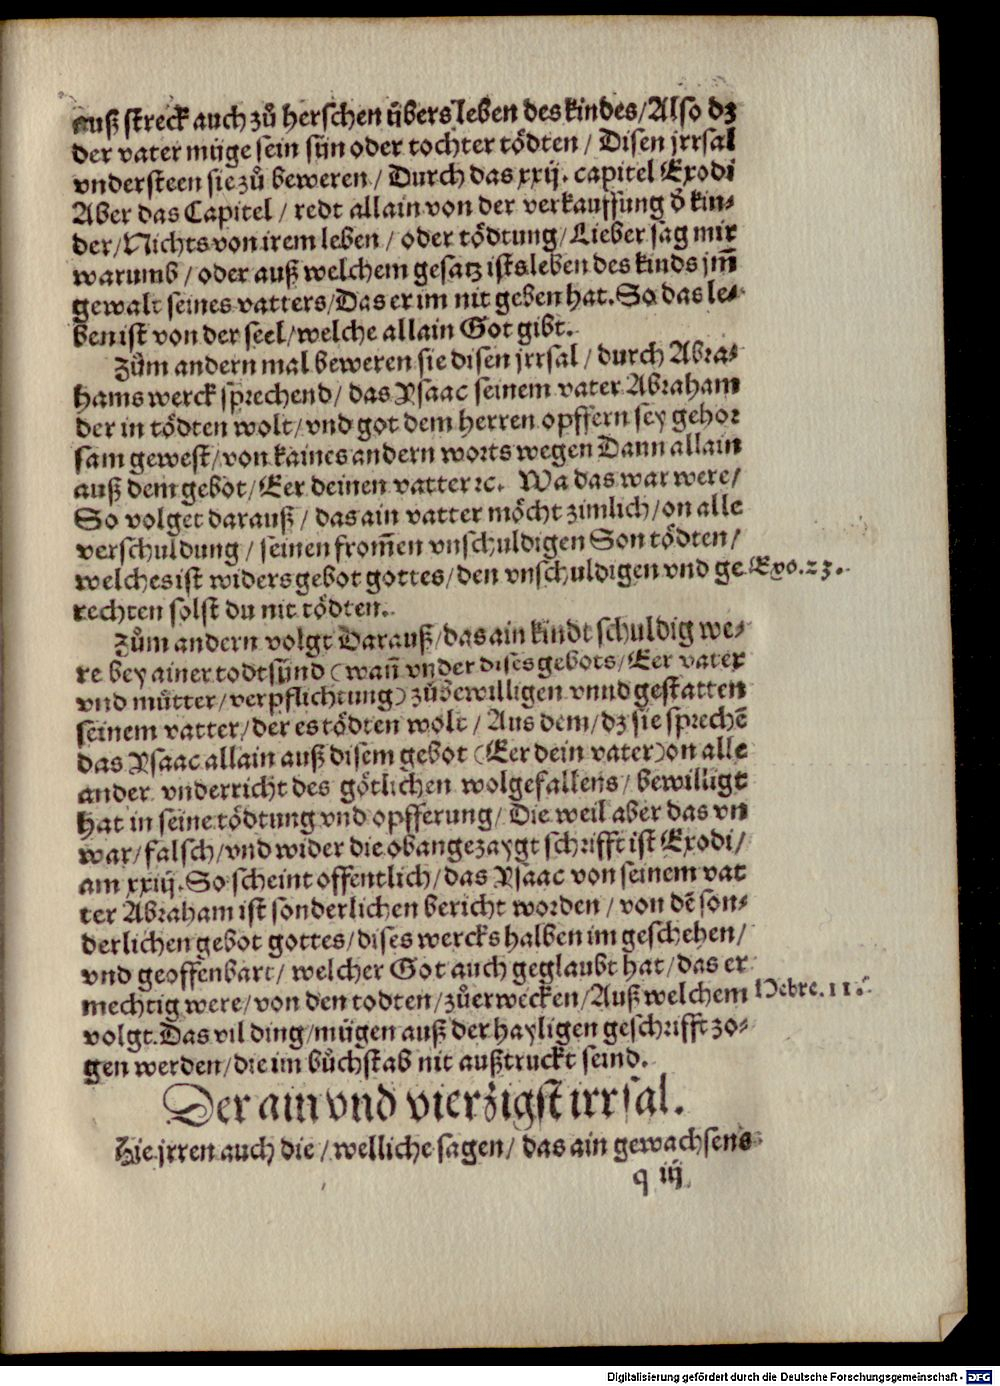 auß streck auch zů herschen übers leben des kindes/Also dz
der vater müge sein sün oder tochter tödten / Disen jrrsal
vndersteen sie zů beweren / Durch das xxij. capitel Exodi
Aber das Capitel / redt allain von der verkauffung d̕ kin-
der/Nichts von irem leben / oder tödtung/Lieber sag mir
warumb / oder auß welchem gesatz ists leben des kinds jm̄
gewalt seines vatters/Das er im nit geben hat. So das le-
ben ist von der seel/welche allain Got gibt.
Zům andern mal beweren sie disen jrrsal / durch Abra-
hams werck sprechend/ das Ysaac seinem vater Abraham
der in tödten wolt/ vnd got dem herren opffern sey gehor
sam gewest/von kaines andern worts wegen Dann allain
auß dem gebot/Eer deinen vatter ꝛc. Wa das war were/
So volget darauß / das ain vatter möcht zimlich/on alle
verschuldung / seinen from̄en vnschuldigen Son tödten/
welches ist widers gebot gottes/den vnschuldigen vnd ge Exo.23.
rechten solst du nit tödten.
Zům andern volgt Darauß/das ain kindt schuldig we-
re bey ainer todtsünd (wan̄ vnder dises gebots/Eer vater
vnd můtter/verpflichtung) zůbewilligen vnnd gestatten
seinem vatter/der es tödten wolt / Aus dem/dz sie sprechē
das Ysaac allain auß disem gebot (Eer dein vater) on alle
ander vnderricht des götlichen wolgefallens/ bewilligt
hat in seine tödtung vnd opfferung/ Die weil aber das vn
war/falsch/vnd wider die obangezaygt schrifft ist Exodi/
am xxiij. So scheint offentlich/das Ysaac von seinem vat
ter Abraham ist sonderlichen bericht worden / von dē son-
derlichen gebot gottes/dises wercks halben im geschehen/
vnd geoffenbart/ welcher Got auch geglaubt hat/das er
mechtig were/von den todten/zůerwecken/Auß welchem Hebre.11.
volgt. Das vil ding/mügen auß der hayligen geschrifft zo-
gen werden/die im bůchstab nit außtruckt seind.
Der ain vnd vierzigst irrsal.
Hie jrren auch die / welliche sagen/ das ain gewachsens
q iij
Digitalisierung gefördert durch die Deutsche Forschungsgemeinschaft - DFG